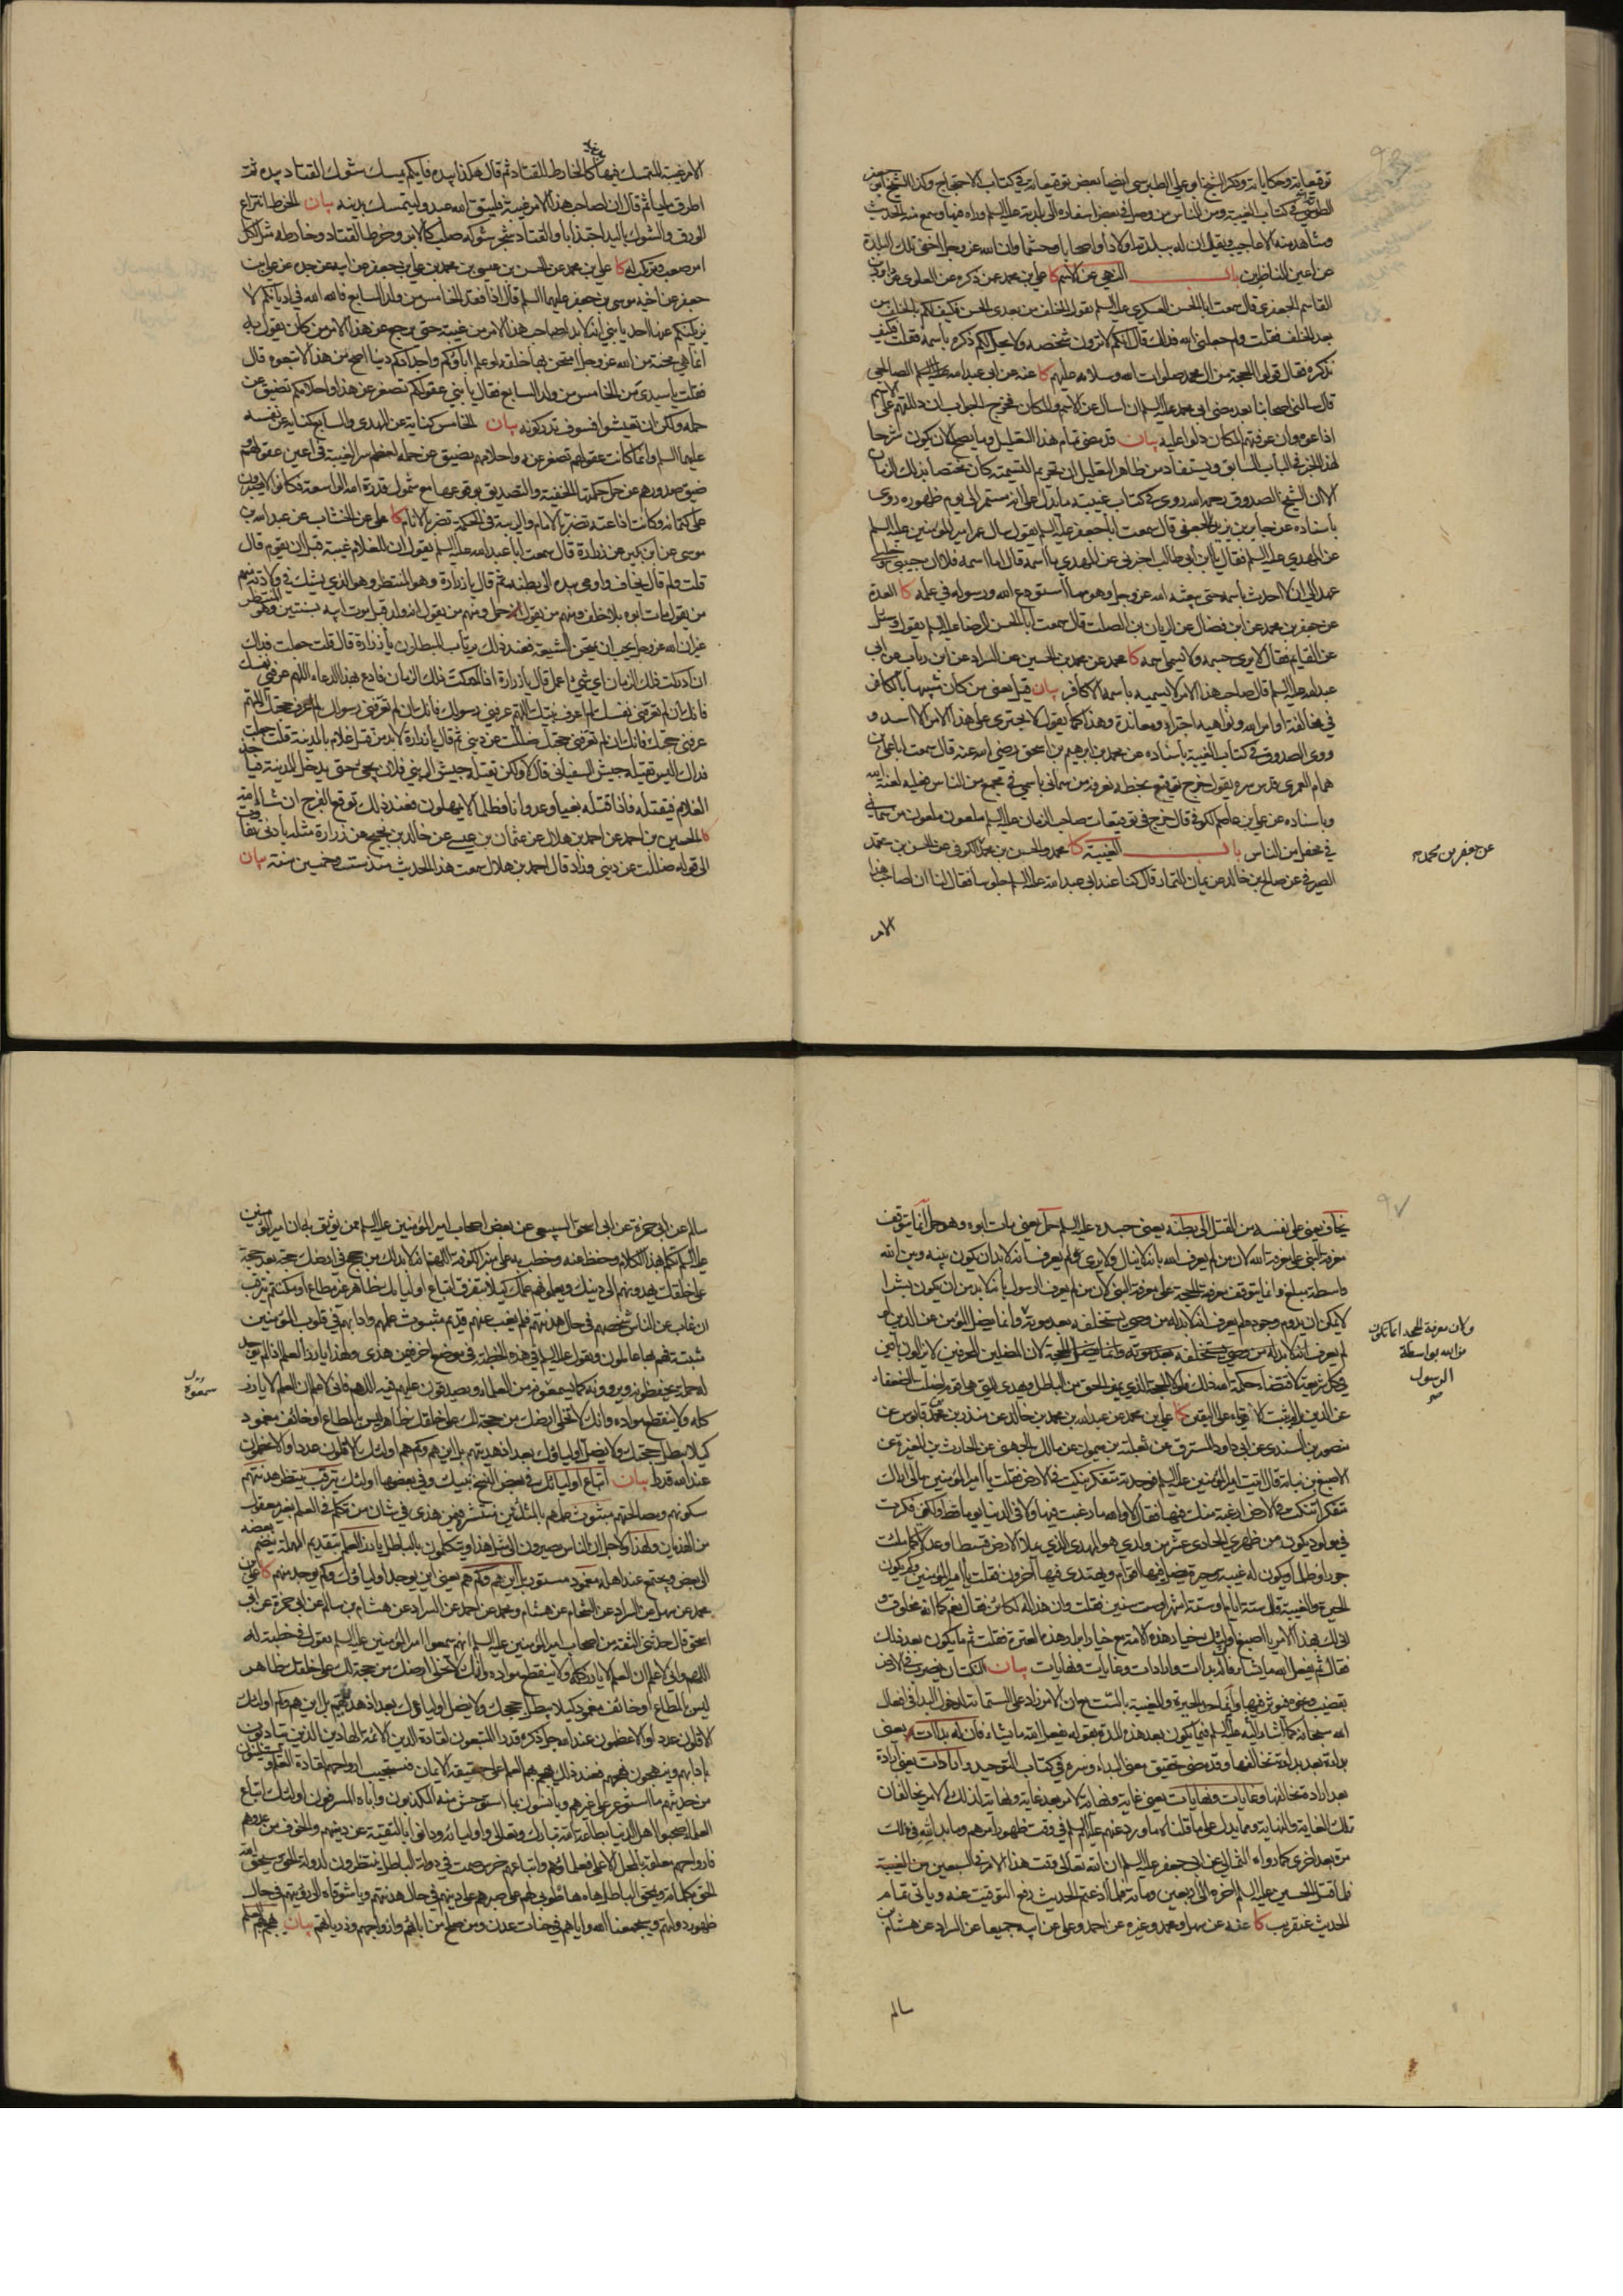 توقيعاته وحكاياته وذكر الشيخ ابو علي الطبرسي ايضا بعض توقيعاته في كتاب الاحتجاج وكذا الشيخ ابو جعفر
الطوسي في كتاب الغيبة ومن الناس من وصل في بعض اسفاره الى بلدته عليه السلم وراه فيها وسمع منه الحديث
وشاهد منه الاعاجيب ويقال ان له ببلدته اولادا واصحابا وحشما وان الله عز وجل اخفى تلك البلدة
عن اعين الناظرين باب النهي عن الاسم كا علي بن محمد عمن ذكره عن العلوي عن داود بن
القاسم الجعفري قال سمعت ابا الحسن العسكري عليه السلم يقول الخلف من بعدي الحسن فكيف لكم بالخلف من
بعد الخلف فقلت ولم جعلني الله فداك قال انكم لا ترون شخصه ولا يحل لكم ذكره باسمه فقلت فكيف
نذكره فقال قولوا الحجة من ال محمد صلوات الله وسلامه عليهم كا عنه عن ابي عبد الله الصالحي
قال سالني اصحابنا بعد مضي ابي محمد عليه السلم ان اسال عن الاسم والمكان فخرج الجواب ان دللتهم على الاسم
اذاعوه وان عرفتهم المكان دلوا عليه بيان قد مضى تمام هذا التعليل وما يصلح لان يكون شرحا
لهذا الخبر في الباب السابق ويستفاد من ظاهر التعليل ان تحريم التسمية كان مختصا بذلك الزمان
الا ان الشيخ الصدوق رحمه الله روى في كتاب غيبته ما يدل على انه مستمر الى يوم ظهوره روى
باسناده عن جابر بن يزيد الجعفي قال سمعت ابا جعفر عليه السلم يقول سال عمر امير المؤمنين عليه السلم
عن المهدي عليه السلم فقال يا ابن ابي طالب اخبرني عن المهدي ما اسمه قال اما اسمه فلا ان حبيبي وخليلي
عهد الي ان لا احدث باسمه حتى يبعثه الله عز وجل وهو مما استودع الله ورسوله في علمه كا العدة
عن جعفر بن محمد عن ابن فضال عن الريان بن الصلت قال سمعت ابا الحسن الرضا عليه السلم يقول وسئل
عن القايم فقال لا يرى جسمه ولا يسمى اسمه كا محمد عن محمد بن الحسين عن السراد عن ابن رئاب عن ابي
عبد الله عليه السلم قال صاحب هذا الامر لا يسميه باسمه الا كافر بيان قيل يعني من كان شبيها بالكافر
في مخالفة اوامر الله ونواهيه اجتراء ومعاندة وهذا كما يقول لا يجتري على هذا الامر الا اسد و
روى الصدوق في كتاب الغيبة باسناده عن محمد بن ابرهيم بن اسحق رضي الله عنه قال سمعت ابا علي بن
همام العمري قدس سره يقول خرج توقيع بخط نعرفه من سماني باسمي في مجمع من الناس فعليه لعنة الله
وباسناده عن علي بن عاصم الكوفي قال خرج في توقيعات صاحب الزمان عليه السلم ملعون ملعون من سماني
في محفل من الناس باب الغيبة كا محمد والحسن بن محمد الكوفي عن الحسن بن محمد
الصيرفي عن صالح بن خالد عن يمان التمار قال كنا عند ابي عبد الله عليه السلم جلوسا فقال لنا ان لصاحب هذا
عن جعفر بن محمد
الامر
الامر غيبة المتمسك فيها كالخارط للقتاد ثم قال هكذا بيده فايكم يمسك شوك القتاد بيده ثم
اطرق مليا ثم قال ان لصاحب هذا الامر غيبة فليتق الله عبد وليتمسك بدينه بيان الخرط انتزاع
الورق والشوك باليد اجتذابا والقتاد شجر شوكه صلب كالابر وخرط القتاد وخارطه مثل لكل
امر صعب ومرتكبه كا علي بن محمد عن الحسن بن عيسى بن محمد بن علي بن جعفر عن ابيه عن جده عن علي بن
جعفر عن اخيه موسى بن جعفر عليهما السلم قال اذا فقد الخامس من ولد السابع فالله الله في اديانكم لا
يزيلنكم عنها احد يا بني انه لا بد لصاحب هذا الامر من غيبة حتى يرجع عن هذا الامر من كان يقول به
انما هي محنة من الله عز وجل امتحن بها خلقه لو علم اباؤكم واجدادكم دينا اصح من هذا لاتبعوه قال
فقلت يا سيدي من الخامس من ولد السابع فقال يا بني عقولكم تصغر عن هذا واحلامكم تضيق عن
حمله ولكن ان تعيشوا فسوف تدركونه بيان الخامس كناية عن المهدي والسابع كناية عن نفسه
عليهما السلم وانما كانت عقولهم تصغر عنه واحلامهم تضيق عن حمله لعظم سر الغيبة في اعين عقولهم و
ضيق صدورهم عن حمل حكمتها الخفية والتصديق بوقوعها مع شمول قدرة الله الواسعة فكانوا لا يصبرون
على كتمانه وكانت اذاعته تضر بالامام والريبة في الحكمة تضر بالانام كا علي عن الخشاب عن عبد الله بن
موسى عن ابن بكير عن زرارة قال سمعت ابا عبد الله عليه السلم يقول ان للغلام غيبة قبل ان يقوم قال
قلت ولم قال يخاف واومى بيده الى بطنه ثم قال يا زرارة وهو المنتظر وهو الذي يشك في ولادته منهم
من يقول مات ابوه بلا خلف ومنهم من يقول حمل ومنهم من يقول انه ولد قبل موت ابيه بسنتين وهو المنتظر
غير ان الله عز وجل يحب ان يمتحن الشيعة فعند ذلك يرتاب المبطلون يا زرارة قال قلت جعلت فداك
ان ادركت ذلك الزمان اي شيء اعمل قال يا زرارة اذا ادركت ذلك الزمان فادع بهذا الدعاء اللهم عرفني نفسك
فانك ان لم تعرفني نفسك لم اعرف نبيك اللهم عرفني رسولك فانك ان لم تعرفني رسولك لم اعرف حجتك اللهم
عرفني حجتك فانك ان لم تعرفني حجتك ضللت عن ديني ثم قال يا زرارة لا بد من قتل غلام بالمدينة قلت جعلت
فداك اليس يقتله جيش السفياني قال لا ولكن يقتله جيش ال بني فلان يجيء حتى يدخل المدينة فياخذ
الغلام فيقتله فاذا قتله بغيا وعدوانا وظلما لا يمهلون فعند ذلك توقع الفرج ان شاء الله
كا الحسين بن احمد عن احمد بن هلال عن عثمان بن عيسى عن خالد بن نجيح عن زرارة مثله بادنى تفاوت
الى قوله ضللت عن ديني وزاد قال احمد بن هلال سمعت هذا الحديث منذ ست وخمسين سنة بيان
٩٧
يخاف يعني على نفسه من القتل الى بطنه يعني جسده عليه السلم حمل يعني مات ابوه وهو حمل انما يتوقف
معرفة النبي على معرفة الله لان من لم يعرف الله بانه لا ينال ولا يرى لم يعرف انه لا بد ان يكون بينه وبين الله
واسطة مبلغ وانما يتوقف معرفة الحجة على معرفة النبي لان من لم يعرف الرسول بانه لا بد من ان يكون بشرا
لا يمكن ان يدوم وجوده لم يعرف انه لا بد له من وصي يستخلفه بعد موته وانما يضل المؤمن عن الدين لو
لم يعرف انه لا بد له من وصي يستخلفه بعد موته وانما يضل
في كل
عن الدين والتثبت لاقوياء على اليقين كا علي بن محمد عن عبد الله بن محمد بن خالد عن منذر بن محمد بن قابوس عن
منصور بن السندي عن ابي داود المسترق عن ثعلبة بن ميمون عن مالك الجهني عن الحارث بن المغيرة عن
الاصبغ بن نباتة قال اتيت امير المؤمنين عليه السلم فوجدته متفكرا ينكت في الارض فقلت يا امير المؤمنين ما لي اراك
متفكرا تنكت في الارض ارغبة منك فيها فقال لا والله ما رغبت فيها ولا في الدنيا يوما قط ولكني فكرت
في مولود يكون من ظهري الحادي عشر من ولدي هو المهدي الذي يملا الارض قسطا وعدلا كما ملئت
جورا وظلما ويكون له غيبة وحيرة يضل فيها اقوام ويهتدي فيها اخرون فقلت يا امير المؤمنين وكم يكون
الحيرة والغيبة قال ستة ايام او ستة اشهر او ست سنين فقلت وان هذا لكائن فقال نعم كما انه مخلوق و
انى لك بهذا الامر يا اصبغ اولئك خيار هذه الامة مع خيار ابرار هذه العترة فقلت ثم ما يكون بعد ذلك
فقال ثم يفعل الله ما يشاء فان له بداءات وارادات وغايات ونهايات بيان النكت ان يضرب في الارض
بقضيب ونحوه فيوثر فيها وانما حد الحيرة والغيبة بالست
الله سبحانه كما اشار اليه عليه السلم فيما يكون بعد هذه المدة بقوله يفعل الله ما يشاء فان له بداءات يعني
بداءة بعد بداءة تخالفها وقد مضى تحقيق معنى البداء وسره في كتاب التوحيد وارادات يعني ارادة
بعد ارادة تخالفها وغايات ونهايات يعني غاية ونهاية لامر بعد غاية ونهاية لذلك الامر تخالفان
تلك الغاية والنهاية ومما يدل على ما قلناه ما ورد عنهم عليهم السلم في وقت ظهور امرهم وما بدا لله في ذلك
مرة بعد اخرى كما رواه الثمالي عن ابي جعفر عليه السلم ان الله تعالى وقت هذا الامر في السبعين من الغيبة
فلما قتل الحسين عليه السلم اخره الى اربعين ومائة فلما اذعتم الحديث رفع التوقيت عنه وياتي تمام
الحديث عنقريب كا عنه عن سهل ومحمد وغيره عن احمد وعلي عن ابيه جميعا عن السراد عن هشام بن
ولان معرفة الحجة انما تكون
من الله بواسطة
الرسول
صح
سالم
سالم عن ابي حمزة عن ابي اسحق السبيعي عن بعض اصحاب امير المؤمنين عليه السلم ممن يوثق به ان امير المؤمنين
عليه السلم تكلم بهذا الكلام وحفظ عنه وخطب به على منبر الكوفة اللهم انه لا بد لك من حجج في ارضك حجة بعد حجة
على خلقك يهدونهم الى دينك ويعلمونهم علمك كيلا يتفرق اتباع اوليائك ظاهر غير مطاع او مكتتم يترقب
ان غاب عن الناس شخصهم في حال هدنتهم فلم يغب عنهم قديم مبثوث علمهم وادابهم في قلوب المؤمنين
مثبتة فهم بها عاملون ويقول عليه السلم في هذه الخطبة في موضع اخر فمن هذا ولهذا يارز العلم اذا لم يوجد
له حملة يحفظونه ويروونه كما يسمعونه من العلماء ويصدقون عليهم فيه اللهم فاني لاعلم ان العلم لا يارز
كله ولا ينقطع مواده وانك لا تخلي ارضك من حجة لك على خلقك ظاهر ليس بالمطاع او خائف مغمور
كيلا يبطل حجتك ولا يضل اولياؤك بعد اذ هديتهم بل اين هم وكم هم اولئك الاقلون عددا والاعظمون
عند الله قدرا بيان اتباع اوليائك في بعض النسخ نبيك وفي بعضها اولئك يترقب ينتظر هدنتهم
سكونهم ومصالحتهم مبثوث علمهم بالمثلثتين منتشره
الى بعض ويجتمع عند اهله مغمور مستور بل اين هم وكم هم يعني اين يوجد اولياؤك وكم يوجد منهم كا علي بن
محمد عن سهل عن السراد عن الشحام عن هشام ومحمد عن احمد عن السراد عن هشام بن سالم عن ابي حمزة عن ابي
اسحق قال حدثني الثقة من اصحاب امير المؤمنين عليه السلم انهم سمعوا امير المؤمنين عليه السلم يقول في خطبة له
اللهم واني لاعلم ان العلم لا يارز كله ولا ينقطع مواده وانك لا تخلي ارضك من حجة لك على خلقك ظاهر
ليس بالمطاع او خائف مغمور كيلا يبطل حججك ولا يضل اولياؤك بعد اذ هديتهم بل اين هم وكم اولئك
الاقلون عددا والاعظمون عند الله جل ذكره قدرا المتبعون لقادة الدين الائمة الهادين الذين يتادبون
بادابهم وينهجون نهجهم فعند ذلك يهجم بهم العلم على حقيقة الايمان فتستجيب ارواحهم لقادة العلم ويستلينون
من حديثهم ما استوعر على غيرهم ويانسون بما استوحش منه المكذبون واباه المسرفون اولئك اتباع
العلماء صحبوا اهل الدنيا بطاعة الله تبارك وتعالى واوليائه ودانوا بالتقية عن دينهم والخوف من عدوهم
فارواحهم معلقة بالمحل الاعلى فعلماؤهم واتباعهم خرس صمت في دولة الباطل ينتظرون لدولة الحق وسيحق الله
الحق بكلماته ويمحق الباطل هاه هاه طوبى لهم على صبرهم على دينهم في حال هدنتهم ويا شوقاه الى رؤيتهم في حال
ظهور دولتهم وسيجمعنا الله واياهم في جنات عدن ومن صلح من ابائهم وازواجهم وذرياتهم بيان يهجم بهم العلم